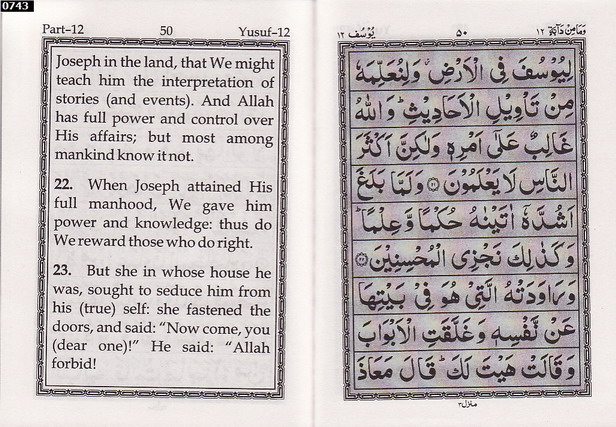 0743
Part-12 50 Yusuf-12
Joseph in the land, that We might
teach him the interpretation of
stories (and events). And Allah
has full power and control over
His affairs; but most among
mankind know it not.
22. When Joseph attained His
full manhood, We gave him
power and knowledge: thus do
We reward those who do right.
23. But she in whose house he
was, sought to seduce him from
his (true) self: she fastened the
doors, and said: “Now come, you
(dear one)!” He said: “Allah
forbid!
وَمَا مِنْ دَآبَّةٍ ١٢ ٥٠ يُوْسُفَ ١٢
لِيُوْسُفَ فِى الْاَرْضِ وَلِنُعَلِّمَهٗ
مِنْ تَاْوِيْلِ الْاَحَادِيْثِ ؕ وَاللّٰهُ
غَالِبٌ عَلٰٓى اَمْرِهٖ وَلٰكِنَّ اَكْثَرَ
النَّاسِ لَا يَعْلَمُوْنَ ﴿٢١﴾ وَلَمَّا بَلَغَ
اَشُدَّهٗۤ اٰتَيْنٰهُ حُكْمًا وَّعِلْمًا ؕ
وَكَذٰلِكَ نَجْزِى الْمُحْسِنِيْنَ ﴿٢٢﴾
وَرَاوَدَتْهُ الَّتِىْ هُوَ فِىْ بَيْتِهَا
عَنْ نَّفْسِهٖ وَغَلَّقَتِ الْاَبْوَابَ
وَقَالَتْ هَيْتَ لَكَ ؕ قَالَ مَعَاذَ
منزل ٣